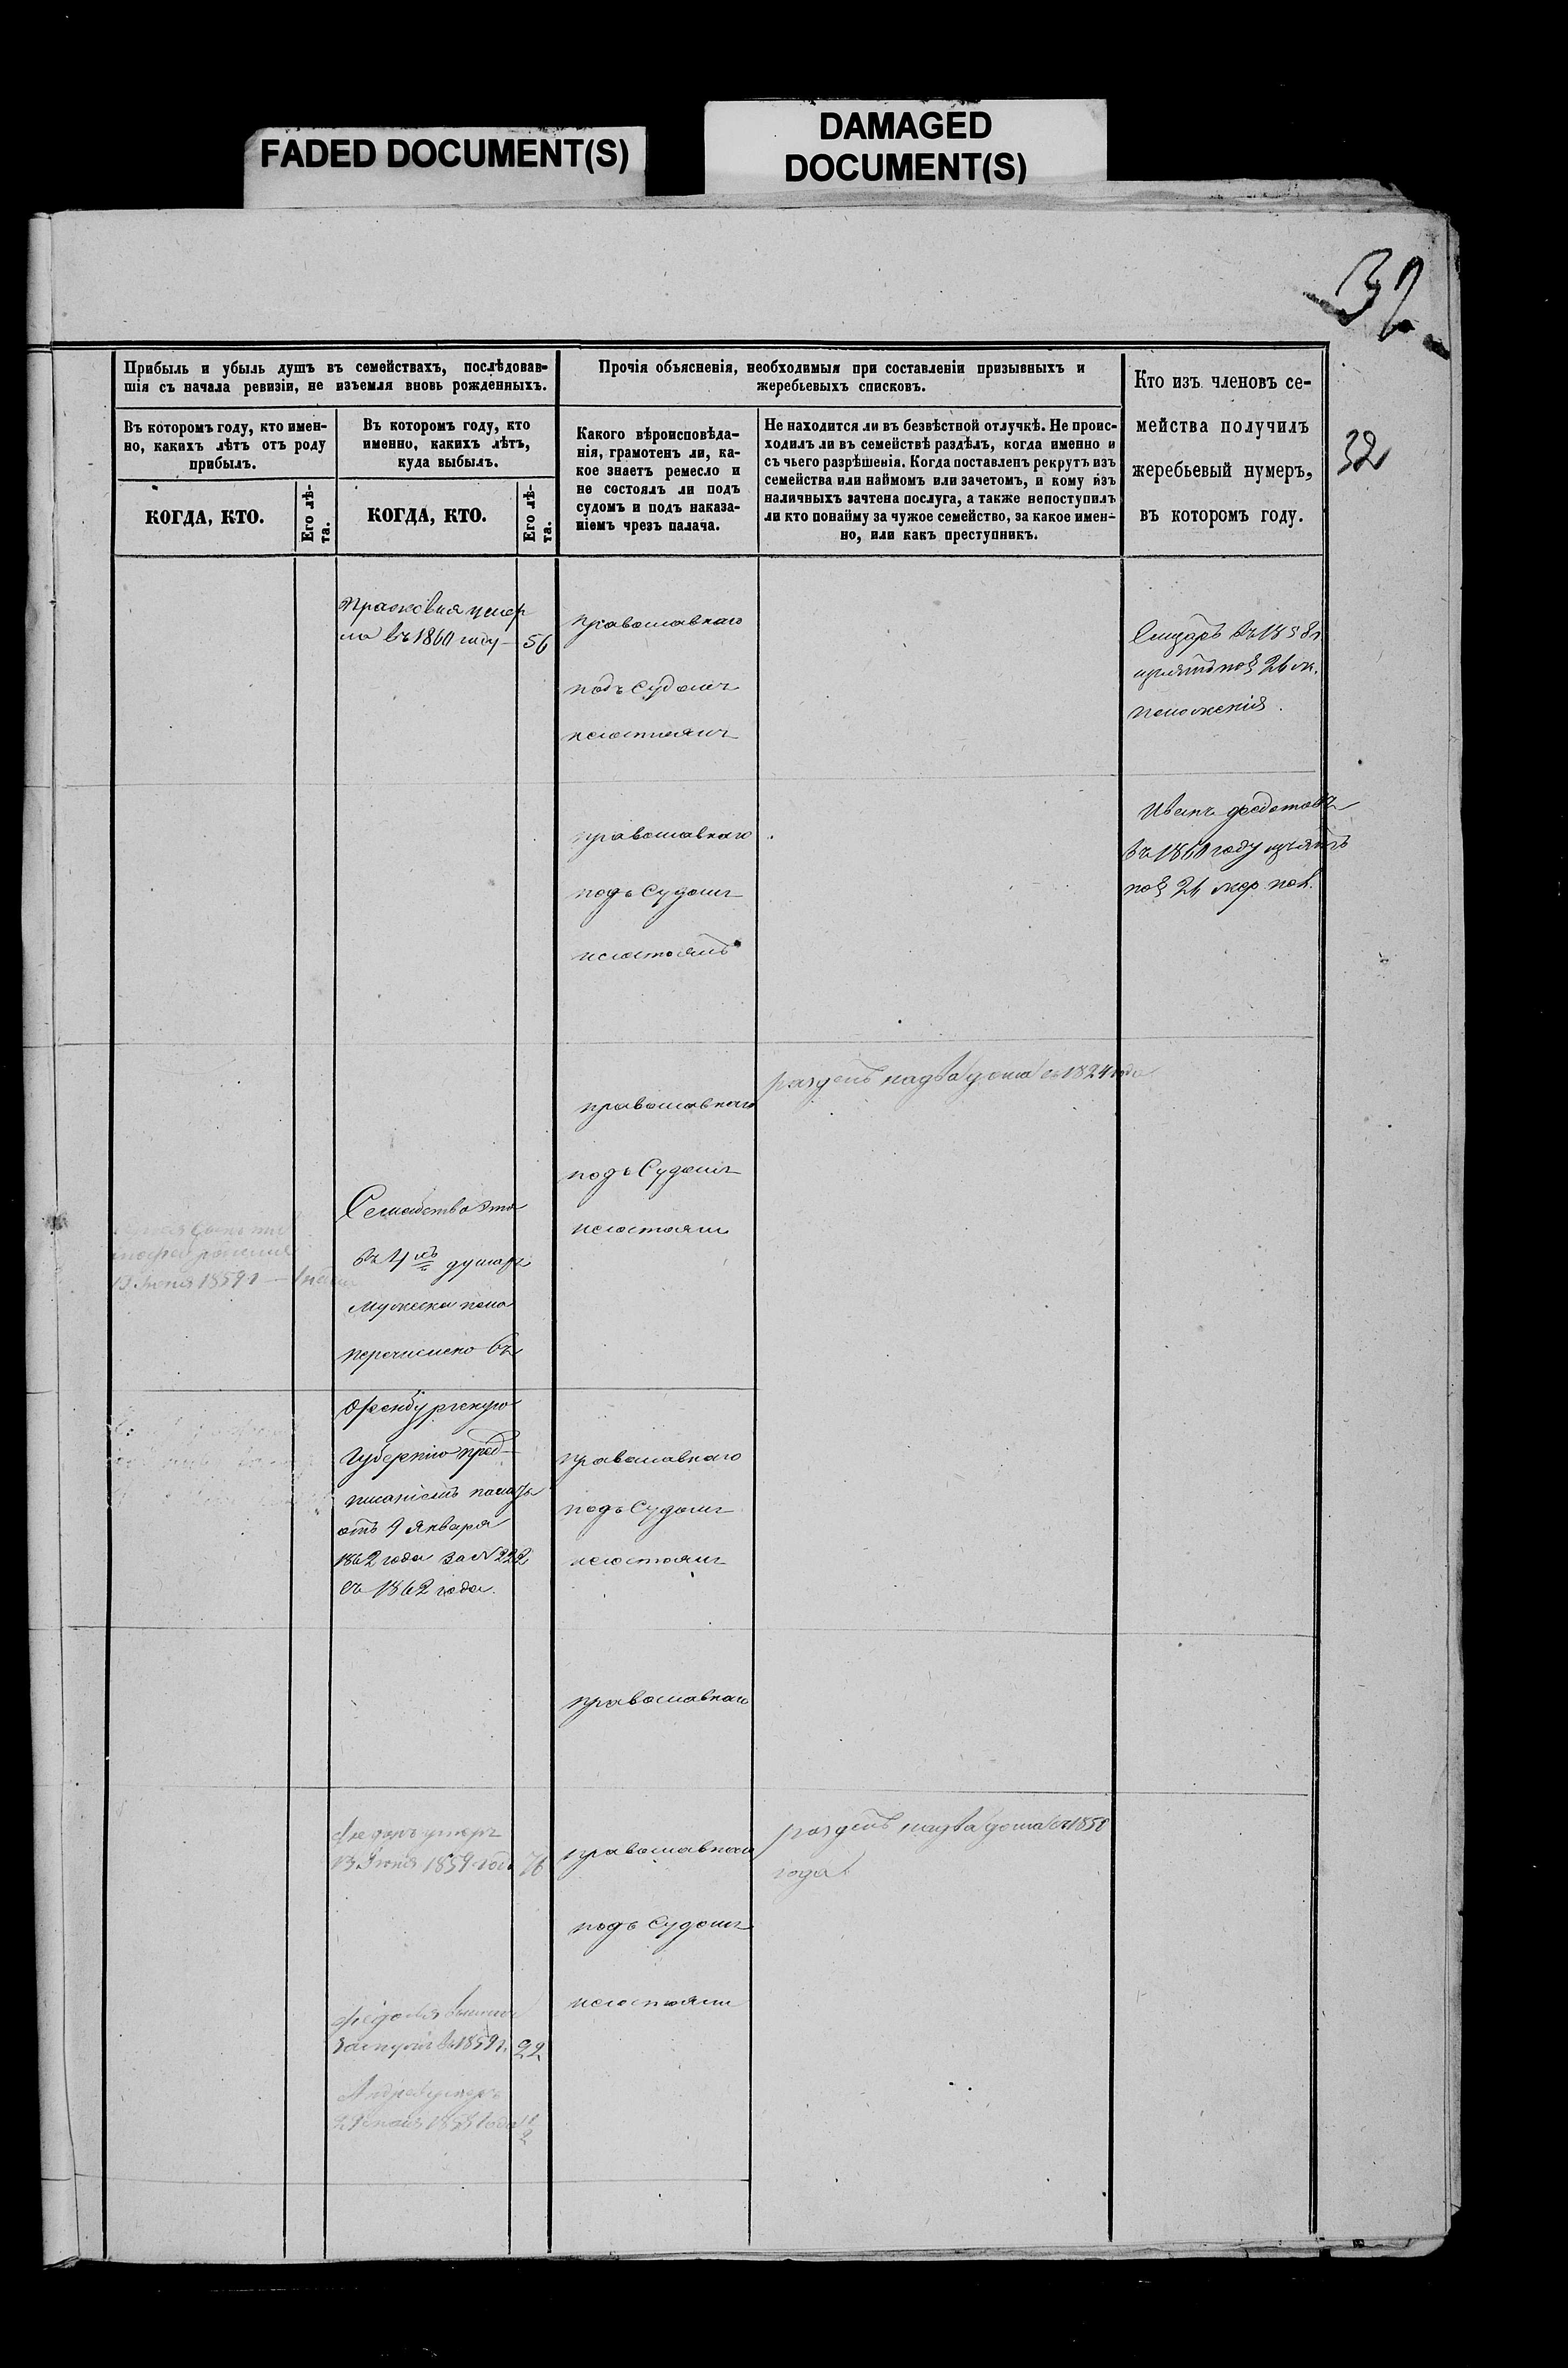 FADED DOCUMENT(S)
DAMAGED
DOCUMENT(S)
32
32
Прибыль и убыль душъ въ семействахъ, послѣдовав-
шія съ начала ревизіи, не изъемля вновь рожденныхъ.
Въ которомъ году, кто имен-
но, какихъ лѣтъ отъ роду
прибылъ.
КОГДА, КТО.
Его лѣ-
та.
Въ которомъ году, кто
именно, какихъ лѣтъ,
куда выбылъ.
КОГДА, КТО.
Его лѣ-
та.
Прочія объясненія, необходимыя при составленіи призывныхъ и
жеребьевыхъ списковъ.
Какого вѣроисповѣда-
нія, грамотенъ ли, ка-
кое знаетъ ремесло и
не состоялъ ли подъ
судомъ и подъ наказа-
ніемъ чрезъ палача.
Не находится ли въ безвѣстной отлучкѣ. Не проис-
ходилъ ли въ семействѣ раздѣлъ, когда именно и
съ чьего разрѣшенія. Когда поставленъ рекрутъ изъ
семейства или наймомъ или зачетомъ, и кому изъ
наличныхъ зачтена послуга, а также непоступилъ
ли кто понайму за чужое семейство, за какое имен-
но, или какъ преступникъ.
Кто изъ членовъ се-
мейства получилъ
жеребьевый нумеръ,
въ которомъ году.
Прасковья умер
ла въ 1860 году 56
православнаго
подъ Судомъ
несостоялъ
въ 1858г.
изъятъ по § 26 ж.
положенія.
православнаго
подъ Судомъ
несостоялъ
Иванъ Федотовъ
въ 1860 году изъятъ
по § 26 жер. пол.
раздѣлъ на два дома съ 1824 года
православнаго
подъ Судомъ
несостоялъ
13 Іюня 1859 г.
Семейство это
въ 4хъ душахъ
мужеска пола
перечислено въ
Оренбургскую
Губернію пред-
писаніемъ палаты
отъ 9 Января
1862 года за № 222
съ 1862 года.
православнаго
подъ Судомъ
несостоялъ
православнаго
Федоръ умеръ
13 Іюня 1859 года 76
православнаго
раздѣлъ на два дома съ 1858
года
подъ Судомъ
несостоялъ
замужъ въ 1859 г. 22
Андрей умеръ